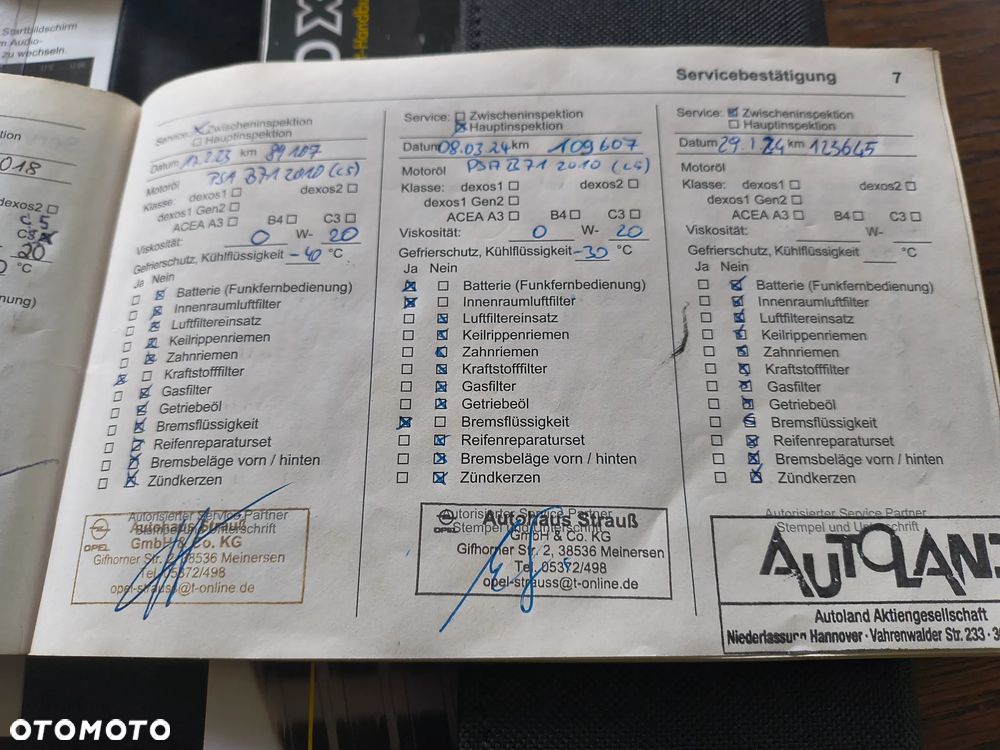 Startbildschirm
m Audio-
zu wechseln.
OX
-Handbuch
Servicebestätigung 7
tion
018
dexos2 ☐
C5
C3
20
°C
nung)
Service: ☒ Zwischeninspektion
☐ Hauptinspektion
Datum km 89107
Motoröl PSA B71 2010 (C5)
Klasse: dexos1 ☐ dexos2 ☐
dexos1 Gen2 ☐
ACEA A3 ☐ B4 ☐ C3 ☐
Viskosität: 0 W- 20
Gefrierschutz, Kühlflüssigkeit -40 °C
Ja Nein
☐ ☒ Batterie (Funkfernbedienung)
☐ ☒ Innenraumluftfilter
☐ ☒ Luftfiltereinsatz
☐ ☒ Keilrippenriemen
☐ ☒ Zahnriemen
☒ ☐ Kraftstofffilter
☐ ☒ Gasfilter
☐ ☒ Getriebeöl
☐ ☒ Bremsflüssigkeit
☐ ☒ Reifenreparaturset
☐ ☒ Bremsbeläge vorn / hinten
☐ ☒ Zündkerzen
Autorisierter Service Partner
Stempel und Unterschrift
OPEL
Autohaus Strauß
GmbH & Co. KG
Gifhorner Str. 2, 38536 Meinersen
Tel. 05372/498
opel-strauss@t-online.de
Service: ☐ Zwischeninspektion
☒ Hauptinspektion
Datum 08.03.24 km 109607
Motoröl PSA B71 2010 (C5)
Klasse: dexos1 ☐ dexos2 ☐
dexos1 Gen2 ☐
ACEA A3 ☐ B4 ☐ C3 ☐
Viskosität: 0 W- 20
Gefrierschutz, Kühlflüssigkeit -30 °C
Ja Nein
☒ ☐ Batterie (Funkfernbedienung)
☒ ☐ Innenraumluftfilter
☐ ☒ Luftfiltereinsatz
☐ ☒ Keilrippenriemen
☐ ☒ Zahnriemen
☐ ☒ Kraftstofffilter
☐ ☒ Gasfilter
☐ ☒ Getriebeöl
☒ ☐ Bremsflüssigkeit
☐ ☒ Reifenreparaturset
☐ ☒ Bremsbeläge vorn / hinten
☐ ☒ Zündkerzen
Autorisierter Service Partner
Stempel und Unterschrift
OPEL
Autohaus Strauß
GmbH & Co. KG
Gifhorner Str. 2, 38536 Meinersen
Tel. 05372/498
opel-strauss@t-online.de
Service: ☒ Zwischeninspektion
☐ Hauptinspektion
Datum km 123645
Motoröl
Klasse: dexos1 ☐ dexos2 ☐
dexos1 Gen2 ☐
ACEA A3 ☐ B4 ☐ C3 ☐
Viskosität: W-
Gefrierschutz, Kühlflüssigkeit °C
Ja Nein
☐ ☒ Batterie (Funkfernbedienung)
☐ ☒ Innenraumluftfilter
☐ ☒ Luftfiltereinsatz
☐ ☒ Keilrippenriemen
☐ ☒ Zahnriemen
☐ ☒ Kraftstofffilter
☐ ☒ Gasfilter
☐ ☒ Getriebeöl
☐ ☒ Bremsflüssigkeit
☐ ☒ Reifenreparaturset
☐ ☒ Bremsbeläge vorn / hinten
☐ ☒ Zündkerzen
Autorisierter Service Partner
Stempel und Unterschrift
AUTOLAND
Autoland Aktiengesellschaft
Niederlassung Hannover · Vahrenwalder Str. 233 · 3
OTOMOTO